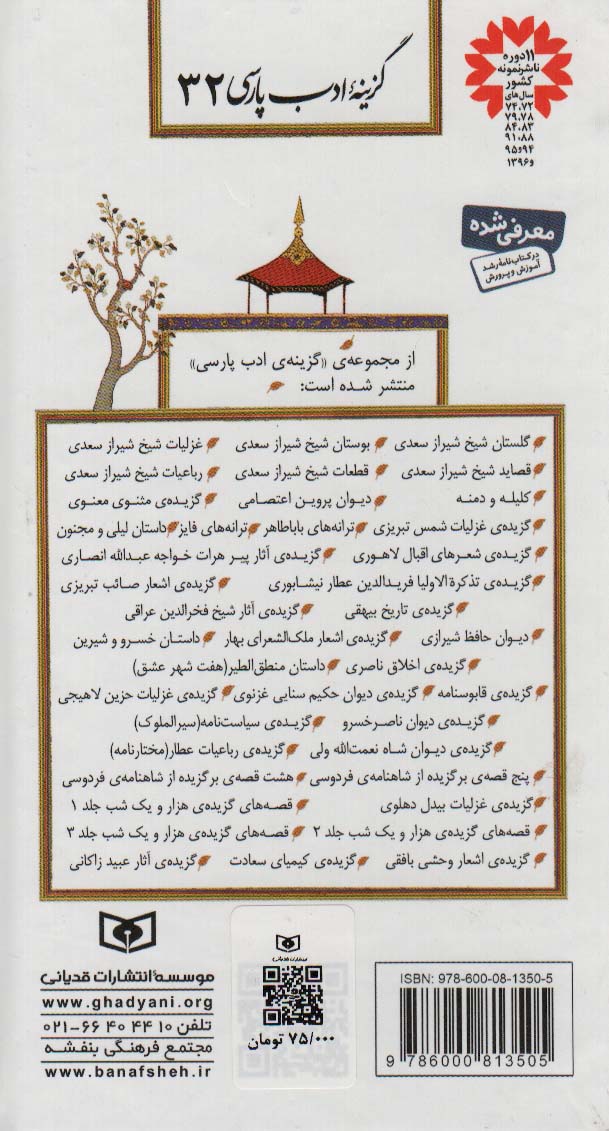 ۱۱ دوره
ناشر نمونه
کشور
سال‌های
۷۴،۷۲
۷۹،۷۸
۸۴،۸۳
۹۱،۸۸
۹۴ و ۹۵
و ۱۳۹۶
گزینهٔ ادب پارسی ۳۲
معرفی شده
در کتاب‌نامهٔ رشد
آموزش و پرورش
از مجموعه‌ی «گزینه‌ی ادب پارسی»
منتشر شده است:
گلستان شیخ شیراز سعدی بوستان شیخ شیراز سعدی غزلیات شیخ شیراز سعدی
قصاید شیخ شیراز سعدی قطعات شیخ شیراز سعدی رباعیات شیخ شیراز سعدی
کلیله و دمنه دیوان پروین اعتصامی گزیده‌ی مثنوی معنوی
گزیده‌ی غزلیات شمس تبریزی ترانه‌های باباطاهر ترانه‌های فایز داستان لیلی و مجنون
گزیده‌ی شعرهای اقبال لاهوری گزیده‌ی آثار پیر هرات خواجه عبدالله انصاری
گزیده‌ی تذکرة الاولیا فریدالدین عطار نیشابوری گزیده‌ی اشعار صائب تبریزی
گزیده‌ی تاریخ بیهقی گزیده‌ی آثار شیخ فخرالدین عراقی
دیوان حافظ شیرازی گزیده‌ی اشعار ملک‌الشعرای بهار داستان خسرو و شیرین
گزیده‌ی اخلاق ناصری داستان منطق‌الطیر (هفت شهر عشق)
گزیده‌ی قابوسنامه گزیده‌ی دیوان حکیم سنایی غزنوی گزیده‌ی غزلیات حزین لاهیجی
گزیده‌ی دیوان ناصرخسرو گزیده‌ی سیاست‌نامه (سیرالملوک)
گزیده‌ی دیوان شاه نعمت‌الله ولی گزیده‌ی رباعیات عطار (مختارنامه)
پنج قصه‌ی برگزیده از شاهنامه‌ی فردوسی هشت قصه‌ی برگزیده از شاهنامه‌ی فردوسی
گزیده‌ی غزلیات بیدل دهلوی قصه‌های گزیده‌ی هزار و یک شب جلد ۱
قصه‌های گزیده‌ی هزار و یک شب جلد ۲ قصه‌های گزیده‌ی هزار و یک شب جلد ۳
گزیده‌ی اشعار وحشی بافقی گزیده‌ی کیمیای سعادت گزیده‌ی آثار عبید زاکانی
موسسهٔ انتشارات قدیانی
www.ghadyani.org
تلفن ۱۰ ۴۴ ۴۰ ۶۶-۰۲۱
مجتمع فرهنگی بنفشه
www.banafsheh.ir
انتشارات قدیانی
۷۵/۰۰۰ تومان
ISBN: 978-600-08-1350-5
9 786000 813505